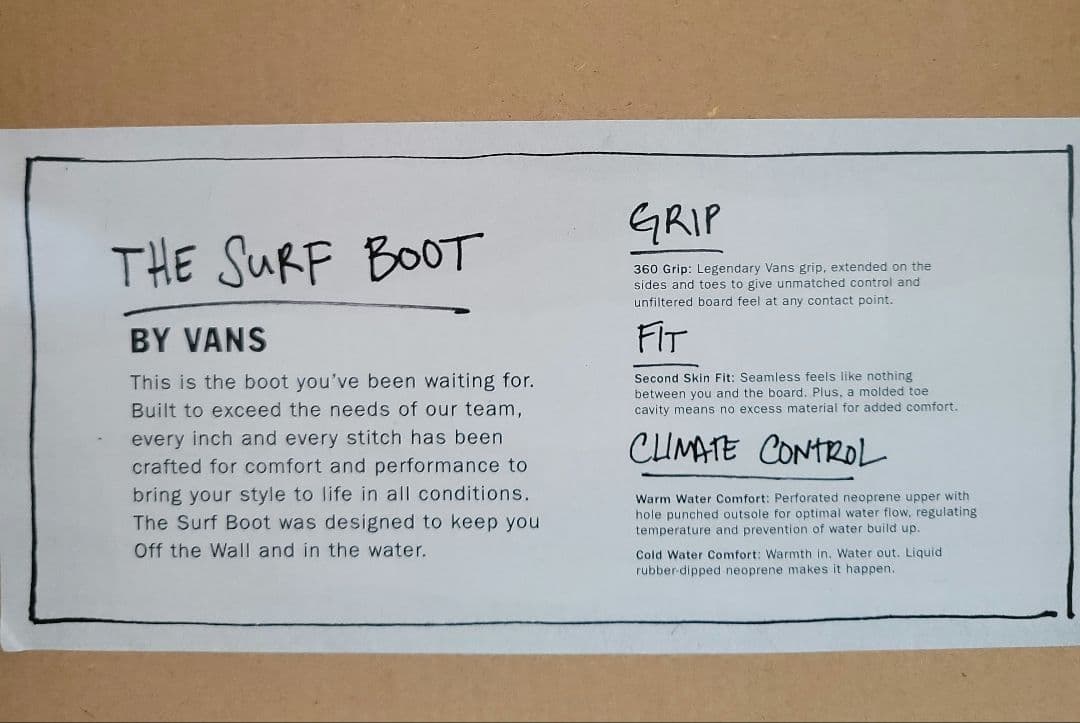 THE SURF BOOT
BY VANS
This is the boot you've been waiting for.
Built to exceed the needs of our team,
every inch and every stitch has been
crafted for comfort and performance to
bring your style to life in all conditions.
The Surf Boot was designed to keep you
Off the Wall and in the water.
GRIP
360 Grip: Legendary Vans grip, extended on the
sides and toes to give unmatched control and
unfiltered board feel at any contact point.
FIT
Second Skin Fit: Seamless feels like nothing
between you and the board. Plus, a molded toe
cavity means no excess material for added comfort.
CLIMATE CONTROL
Warm Water Comfort: Perforated neoprene upper with
hole punched outsole for optimal water flow, regulating
temperature and prevention of water build up.
Cold Water Comfort: Warmth in. Water out. Liquid
rubber-dipped neoprene makes it happen.